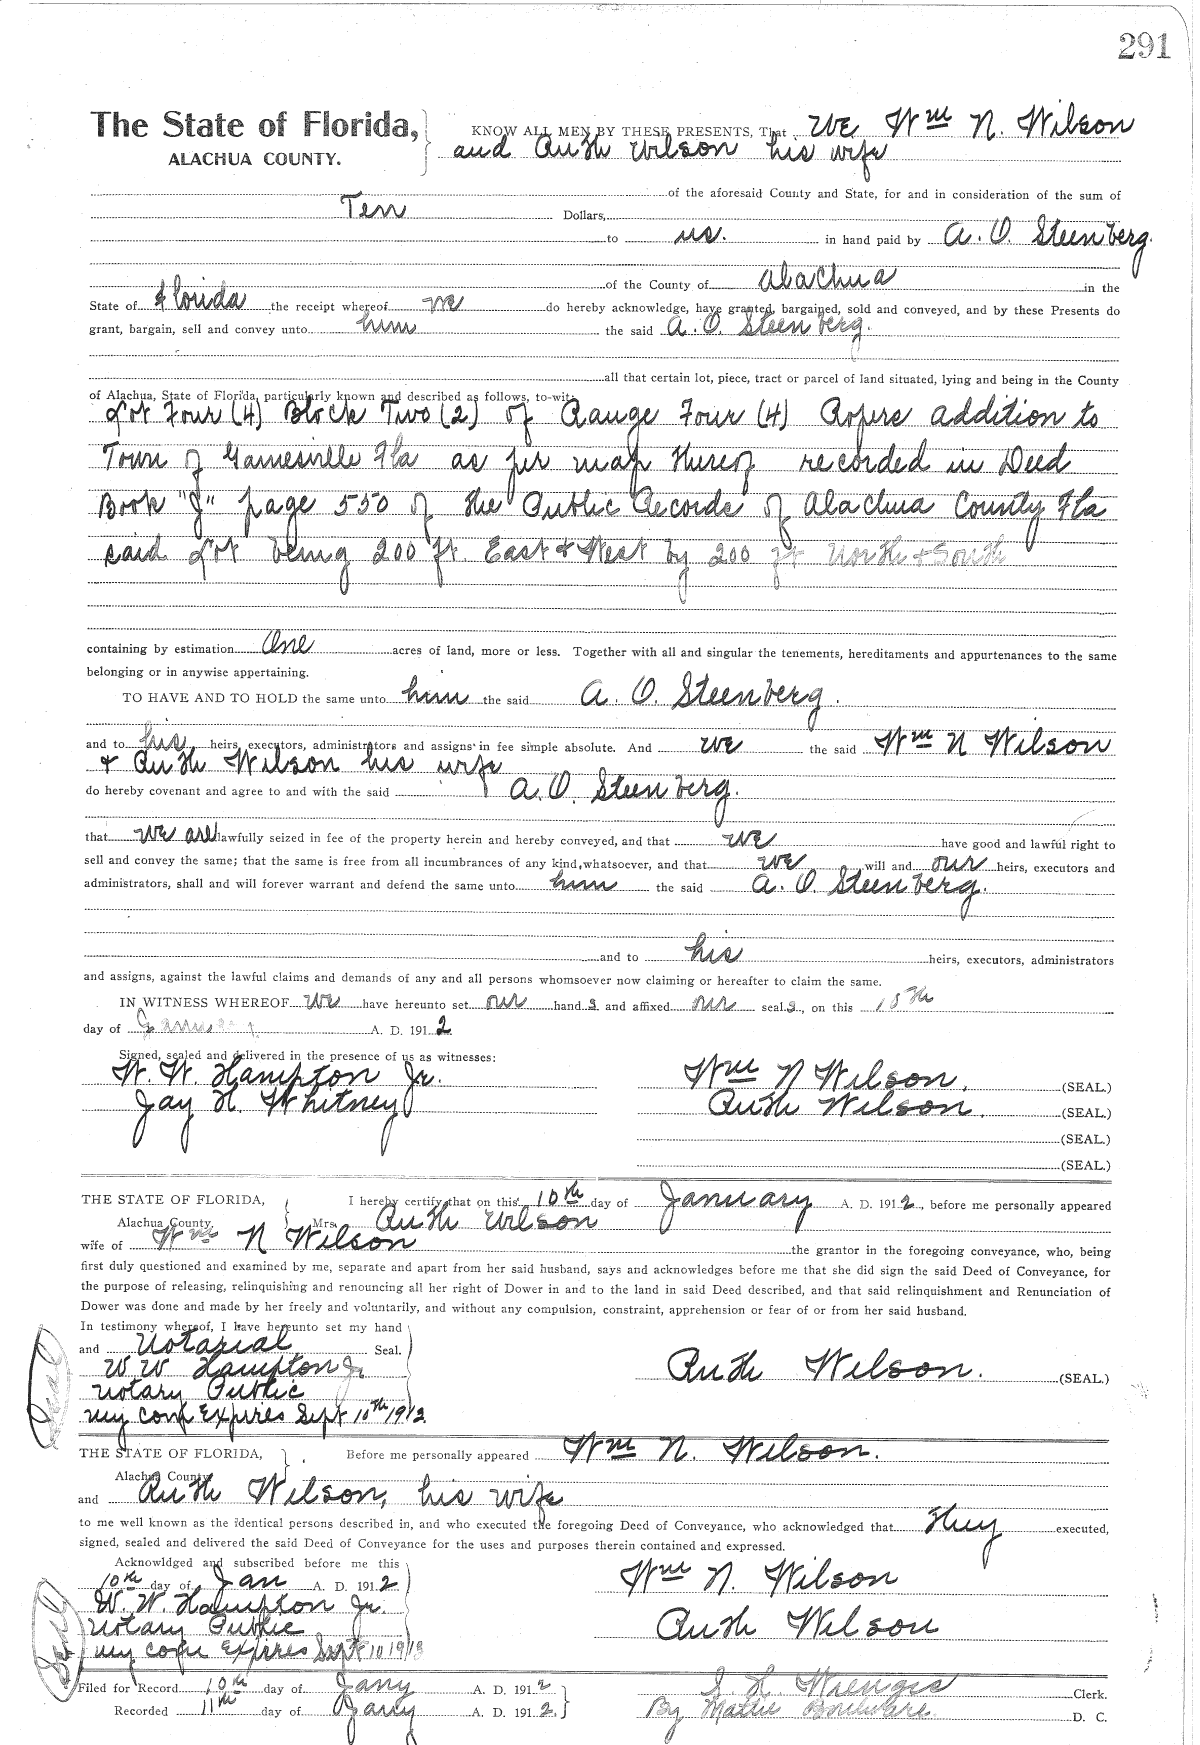 291
The State of Florida, KNOW ALL MEN BY THESE PRESENTS, That We Wm N. Wilson
ALACHUA COUNTY. and Ruth Wilson his wife
of the aforesaid County and State, for and in consideration of the sum of
Ten Dollars,
to us. in hand paid by A. O. Steenberg.
of the County of Alachua in the
State of Florida the receipt whereof we do hereby acknowledge, have granted, bargained, sold and conveyed, and by these Presents do
grant, bargain, sell and convey unto him the said A. O. Steenberg.
all that certain lot, piece, tract or parcel of land situated, lying and being in the County
of Alachua, State of Florida, particularly known and described as follows, to-wit:
Lot Four (4) Block Two (2) of Range Four (4) Ropers addition to
Town of Gainesville Fla as per map thereof recorded in Deed
Book "J" page 550 of the Public Records of Alachua County Fla
said Lot being 200 ft. East & West by 200 ft North & South
containing by estimation One acres of land, more or less. Together with all and singular the tenements, hereditaments and appurtenances to the same
belonging or in anywise appertaining.
TO HAVE AND TO HOLD the same unto him the said A. O. Steenberg.
and to his heirs, executors, administrators and assigns in fee simple absolute. And we the said Wm N Wilson
& Ruth Wilson his wife
do hereby covenant and agree to and with the said A. O. Steenberg.
that we are lawfully seized in fee of the property herein and hereby conveyed, and that we have good and lawful right to
sell and convey the same; that the same is free from all incumbrances of any kind whatsoever, and that we will and our heirs, executors and
administrators, shall and will forever warrant and defend the same unto him the said A. O. Steenberg.
and to his heirs, executors, administrators
and assigns, against the lawful claims and demands of any and all persons whomsoever now claiming or hereafter to claim the same.
IN WITNESS WHEREOF We have hereunto set our hand s and affixed our seal s, on this 10th
day of January A. D. 191 2
Signed, sealed and delivered in the presence of us as witnesses:
W. W. Hampton Jr. Wm N Wilson. (SEAL.)
Jay H. Whitney Ruth Wilson. (SEAL.)
(SEAL.)
(SEAL.)
THE STATE OF FLORIDA, I hereby certify that on this 10th day of January A. D. 191 2, before me personally appeared
Alachua County Mrs. Ruth Wilson
wife of Wm N Wilson the grantor in the foregoing conveyance, who, being
first duly questioned and examined by me, separate and apart from her said husband, says and acknowledges before me that she did sign the said Deed of Conveyance, for
the purpose of releasing, relinquishing and renouncing all her right of Dower in and to the land in said Deed described, and that said relinquishment and Renunciation of
Dower was done and made by her freely and voluntarily, and without any compulsion, constraint, apprehension or fear of or from her said husband.
In testimony whereof, I have hereunto set my hand
and Notarial Seal.
W W Hampton Jr Ruth Wilson. (SEAL.)
Notary Public
Seal
my com Expires Sept 10th 1913
THE STATE OF FLORIDA, Before me personally appeared Wm N. Wilson.
Alachua County
and Ruth Wilson, his wife
to me well known as the identical persons described in, and who executed the foregoing Deed of Conveyance, who acknowledged that they executed,
signed, sealed and delivered the said Deed of Conveyance for the uses and purposes therein contained and expressed.
Acknowldged and subscribed before me this
10th day of Jan A. D. 191 2 Wm N. Wilson
W. W. Hampton Jr.
Notary Public Ruth Wilson
Seal
my com Expires Sept 10 1913
Filed for Record 10th day of Jany A. D. 191 2 Clerk.
Recorded 11th day of Jany A. D. 191 2. By Mattie Bouleware. D. C.